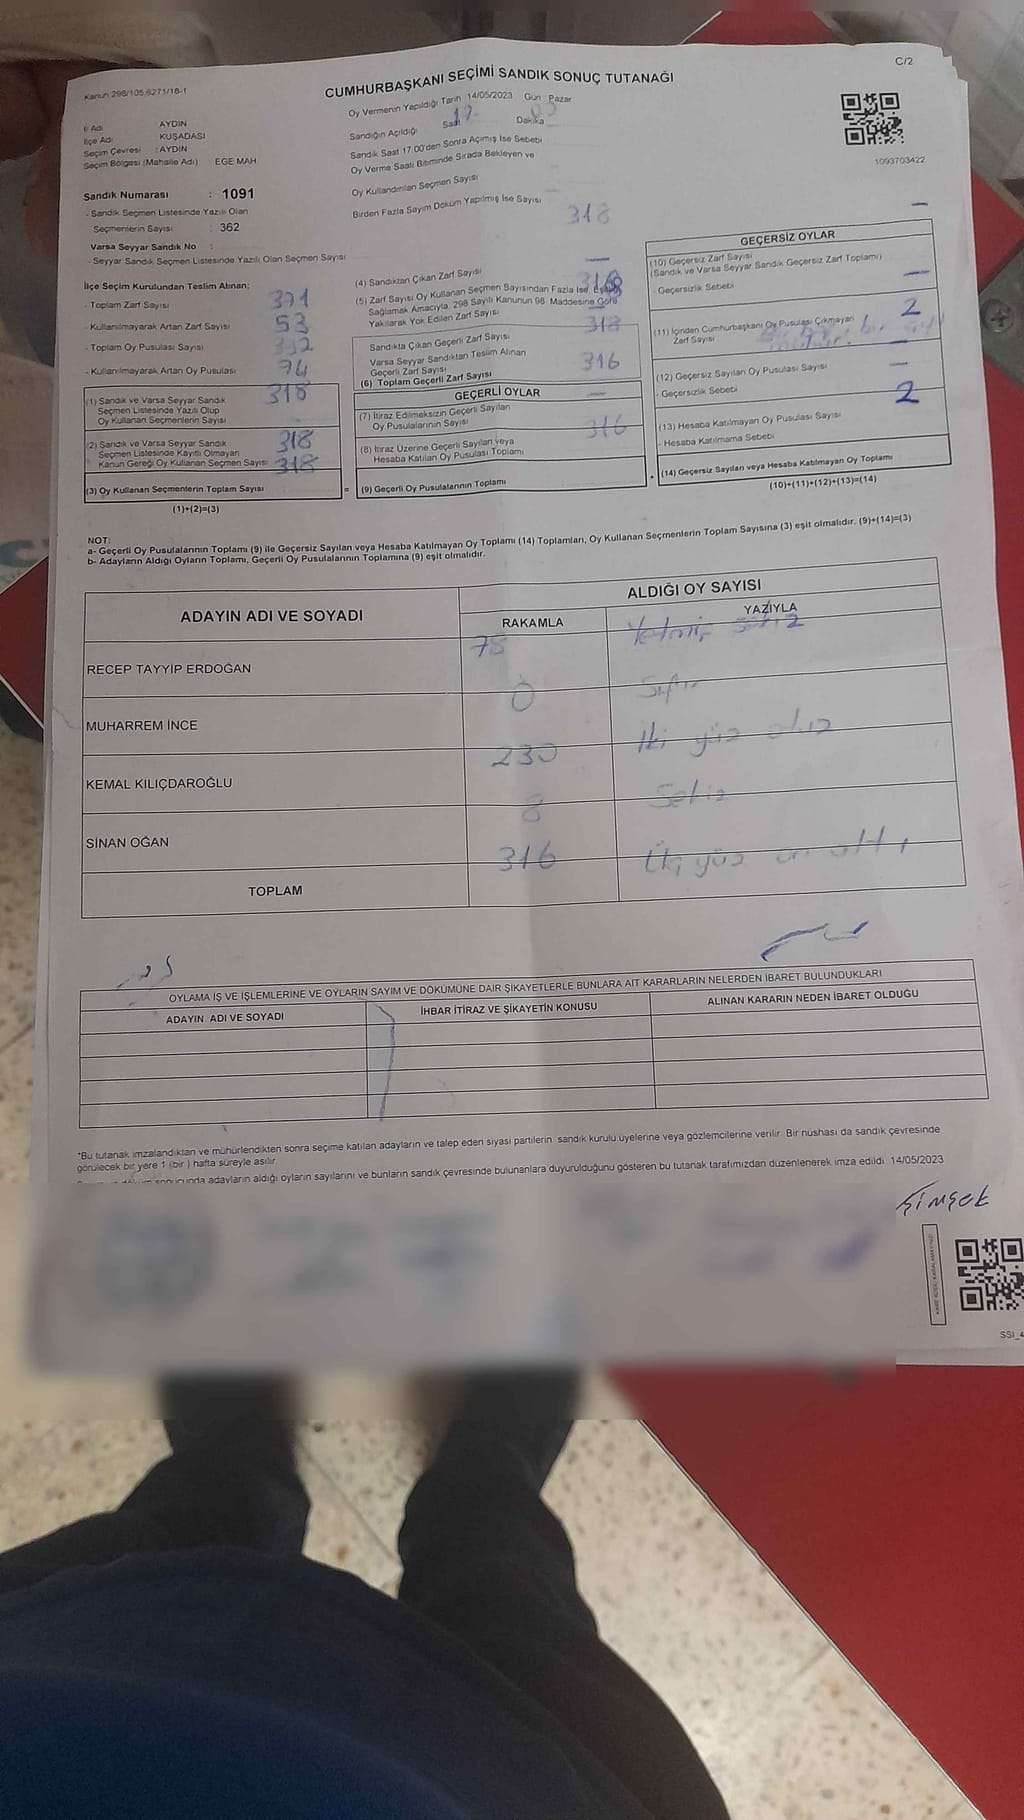 C/2
Kanun 298/105,6271/18-1
CUMHURBAŞKANI SEÇİMİ SANDIK SONUÇ TUTANAĞI
İl Adı AYDIN
İlçe Adı KUŞADASI
Seçim Çevresi : AYDIN
Seçim Bölgesi (Mahalle Adı) EGE MAH
Oy Vermenin Yapıldığı Tarih 14/05/2023 Gün : Pazar
Sandığın Açıldığı Saat Dakika
Sandık Saat 17:00'den Sonra Açımış İse Sebebi
Oy Verme Saati Bitiminde Sırada Bekleyen ve
Oy Kullandırılan Seçmen Sayısı
Birden Fazla Sayım Döküm Yapılmış İse Sayısı
318
1093703422
Sandık Numarası : 1091
- Sandık Seçmen Listesinde Yazılı Olan
Seçmenlerin Sayısı : 362
Varsa Seyyar Sandık No :
- Seyyar Sandık Seçmen Listesinde Yazılı Olan Seçmen Sayısı
İlçe Seçim Kurulundan Teslim Alınan;
- Toplam Zarf Sayısı 371
- Kullanılmayarak Artan Zarf Sayısı 53
- Toplam Oy Pusulası Sayısı
- Kullanılmayarak Artan Oy Pusulası 74
318
(1) Sandık ve Varsa Seyyar Sandık
Seçmen Listesinde Yazılı Olup
Oy Kullanan Seçmenlerin Sayısı
(2) Sandık ve Varsa Seyyar Sandık 318
Seçmen Listesinde Kayıtlı Olmayan
Kanun Gereği Oy Kullanan Seçmen Sayısı 318
(3) Oy Kullanan Seçmenlerin Toplam Sayısı =
(1)+(2)=(3)
(4) Sandıktan Çıkan Zarf Sayısı —
(5) Zarf Sayısı Oy Kullanan Seçmen Sayısından Fazla İse, Eşitliği 318
Sağlamak Amacıyla, 298 Sayılı Kanunun 98. Maddesine Göre
Yakılarak Yok Edilen Zarf Sayısı 318
Sandıkta Çıkan Geçerli Zarf Sayısı
Varsa Seyyar Sandıktan Teslim Alınan
Geçerli Zarf Sayısı 316
(6) Toplam Geçerli Zarf Sayısı
GEÇERLİ OYLAR —
(7) İtiraz Edilmeksizin Geçerli Sayılan
Oy Pusulalarının Sayısı 316
(8) İtiraz Üzerine Geçerli Sayılan veya
Hesaba Katılan Oy Pusulası Toplamı
(9) Geçerli Oy Pusulalarının Toplamı +
—
GEÇERSİZ OYLAR
(10) Geçersiz Zarf Sayısı
(Sandık ve Varsa Seyyar Sandık Geçersiz Zarf Toplamı)
- Geçersizlik Sebebi —
2
(11) İçinden Cumhurbaşkanı Oy Pusulası Çıkmayan
Zarf Sayısı —
(12) Geçersiz Sayılan Oy Pusulası Sayısı —
- Geçersizlik Sebebi 2
(13) Hesaba Katılmayan Oy Pusulası Sayısı
- Hesaba Katılmama Sebebi
(14) Geçersiz Sayılan veya Hesaba Katılmayan Oy Toplamı
(10)+(11)+(12)+(13)=(14)
NOT:
a- Geçerli Oy Pusulalarının Toplamı (9) ile Geçersiz Sayılan veya Hesaba Katılmayan Oy Toplamı (14) Toplamları, Oy Kullanan Seçmenlerin Toplam Sayısına (3) eşit olmalıdır. (9)+(14)=(3)
b- Adayların Aldığı Oyların Toplamı, Geçerli Oy Pusulalarının Toplamına (9) eşit olmalıdır.
ADAYIN ADI VE SOYADI ALDIĞI OY SAYISI
RAKAMLA YAZIYLA
78 Yetmiş sekiz
RECEP TAYYİP ERDOĞAN
0 Sıfır
MUHARREM İNCE
230 İki yüz otuz
KEMAL KILIÇDAROĞLU
8 Sekiz
SİNAN OĞAN
316 Üç yüz on altı
TOPLAM
OYLAMA İŞ VE İŞLEMLERİNE VE OYLARIN SAYIM VE DÖKÜMÜNE DAİR ŞİKAYETLERLE BUNLARA AİT KARARLARIN NELERDEN İBARET BULUNDUKLARI
ADAYIN ADI VE SOYADI İHBAR İTİRAZ VE ŞİKAYETİN KONUSU ALINAN KARARIN NEDEN İBARET OLDUĞU
*Bu tutanak imzalandıktan ve mühürlendikten sonra seçime katılan adayların ve talep eden siyasi partilerin sandık kurulu üyelerine veya gözlemcilerine verilir. Bir nüshası da sandık çevresinde
görülecek bir yere 1 (bir) hafta süreyle asılır.
sonucunda adayların aldığı oyların sayılarını ve bunların sandık çevresinde bulunanlara duyurulduğunu gösteren bu tutanak tarafımızdan düzenlenerek imza edildi. 14/05/2023
ŞİMŞEK
SSI_4